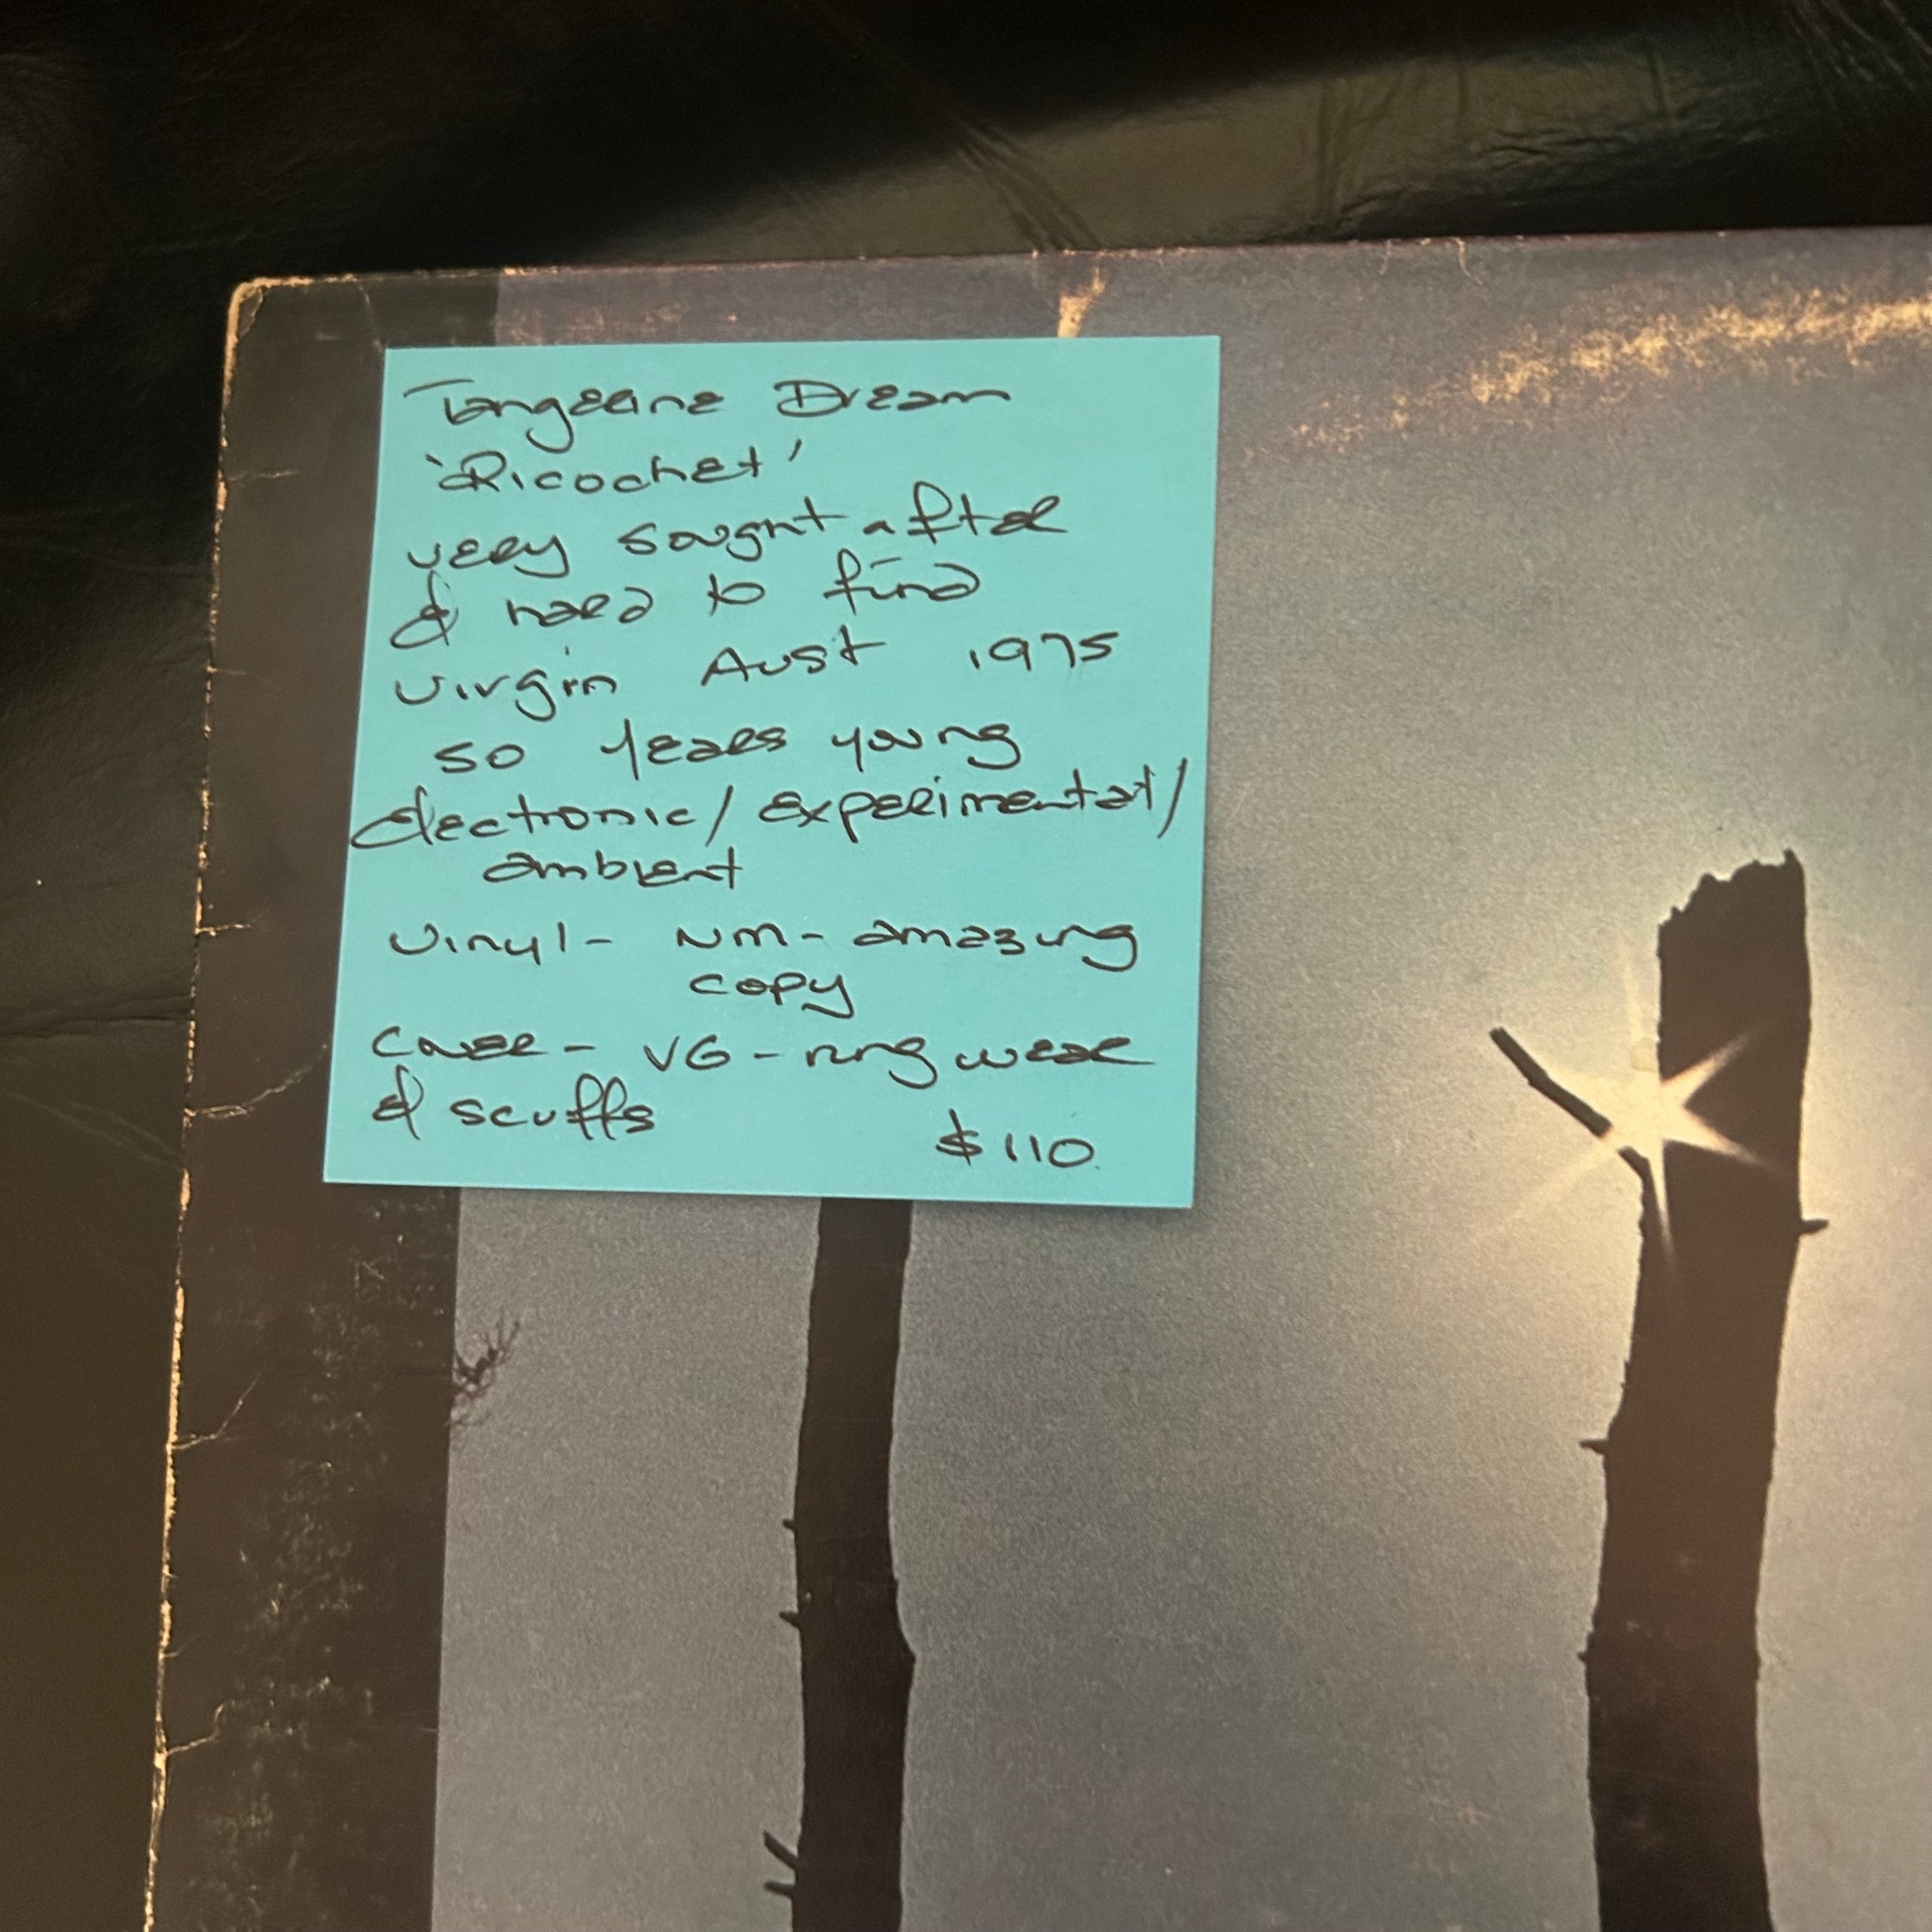 Tangerine Dream
'Ricochet'
very sought after
& hard to find
Virgin Aust 1975
50 years young
electronic/experimental/
ambient
Vinyl - NM - amazing
copy
Cover - VG - ring wear
& scuffs
$110